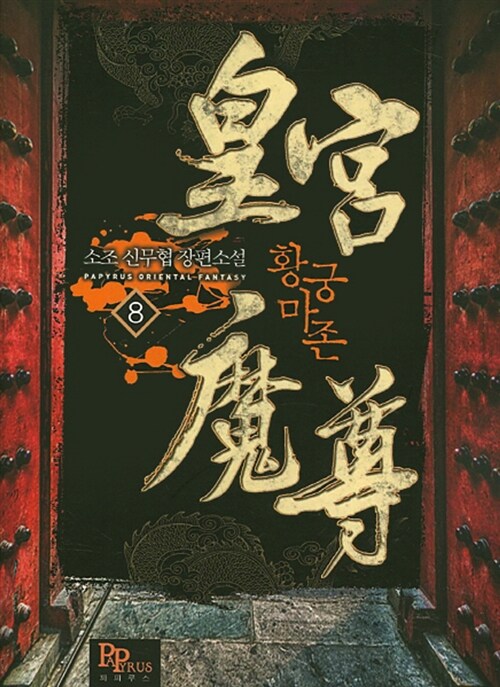 皇宮
魔尊
황궁
마존
소조 신무협 장편소설
PAPYRUS ORIENTAL FANTASY
8
PAPYRUS
파피루스